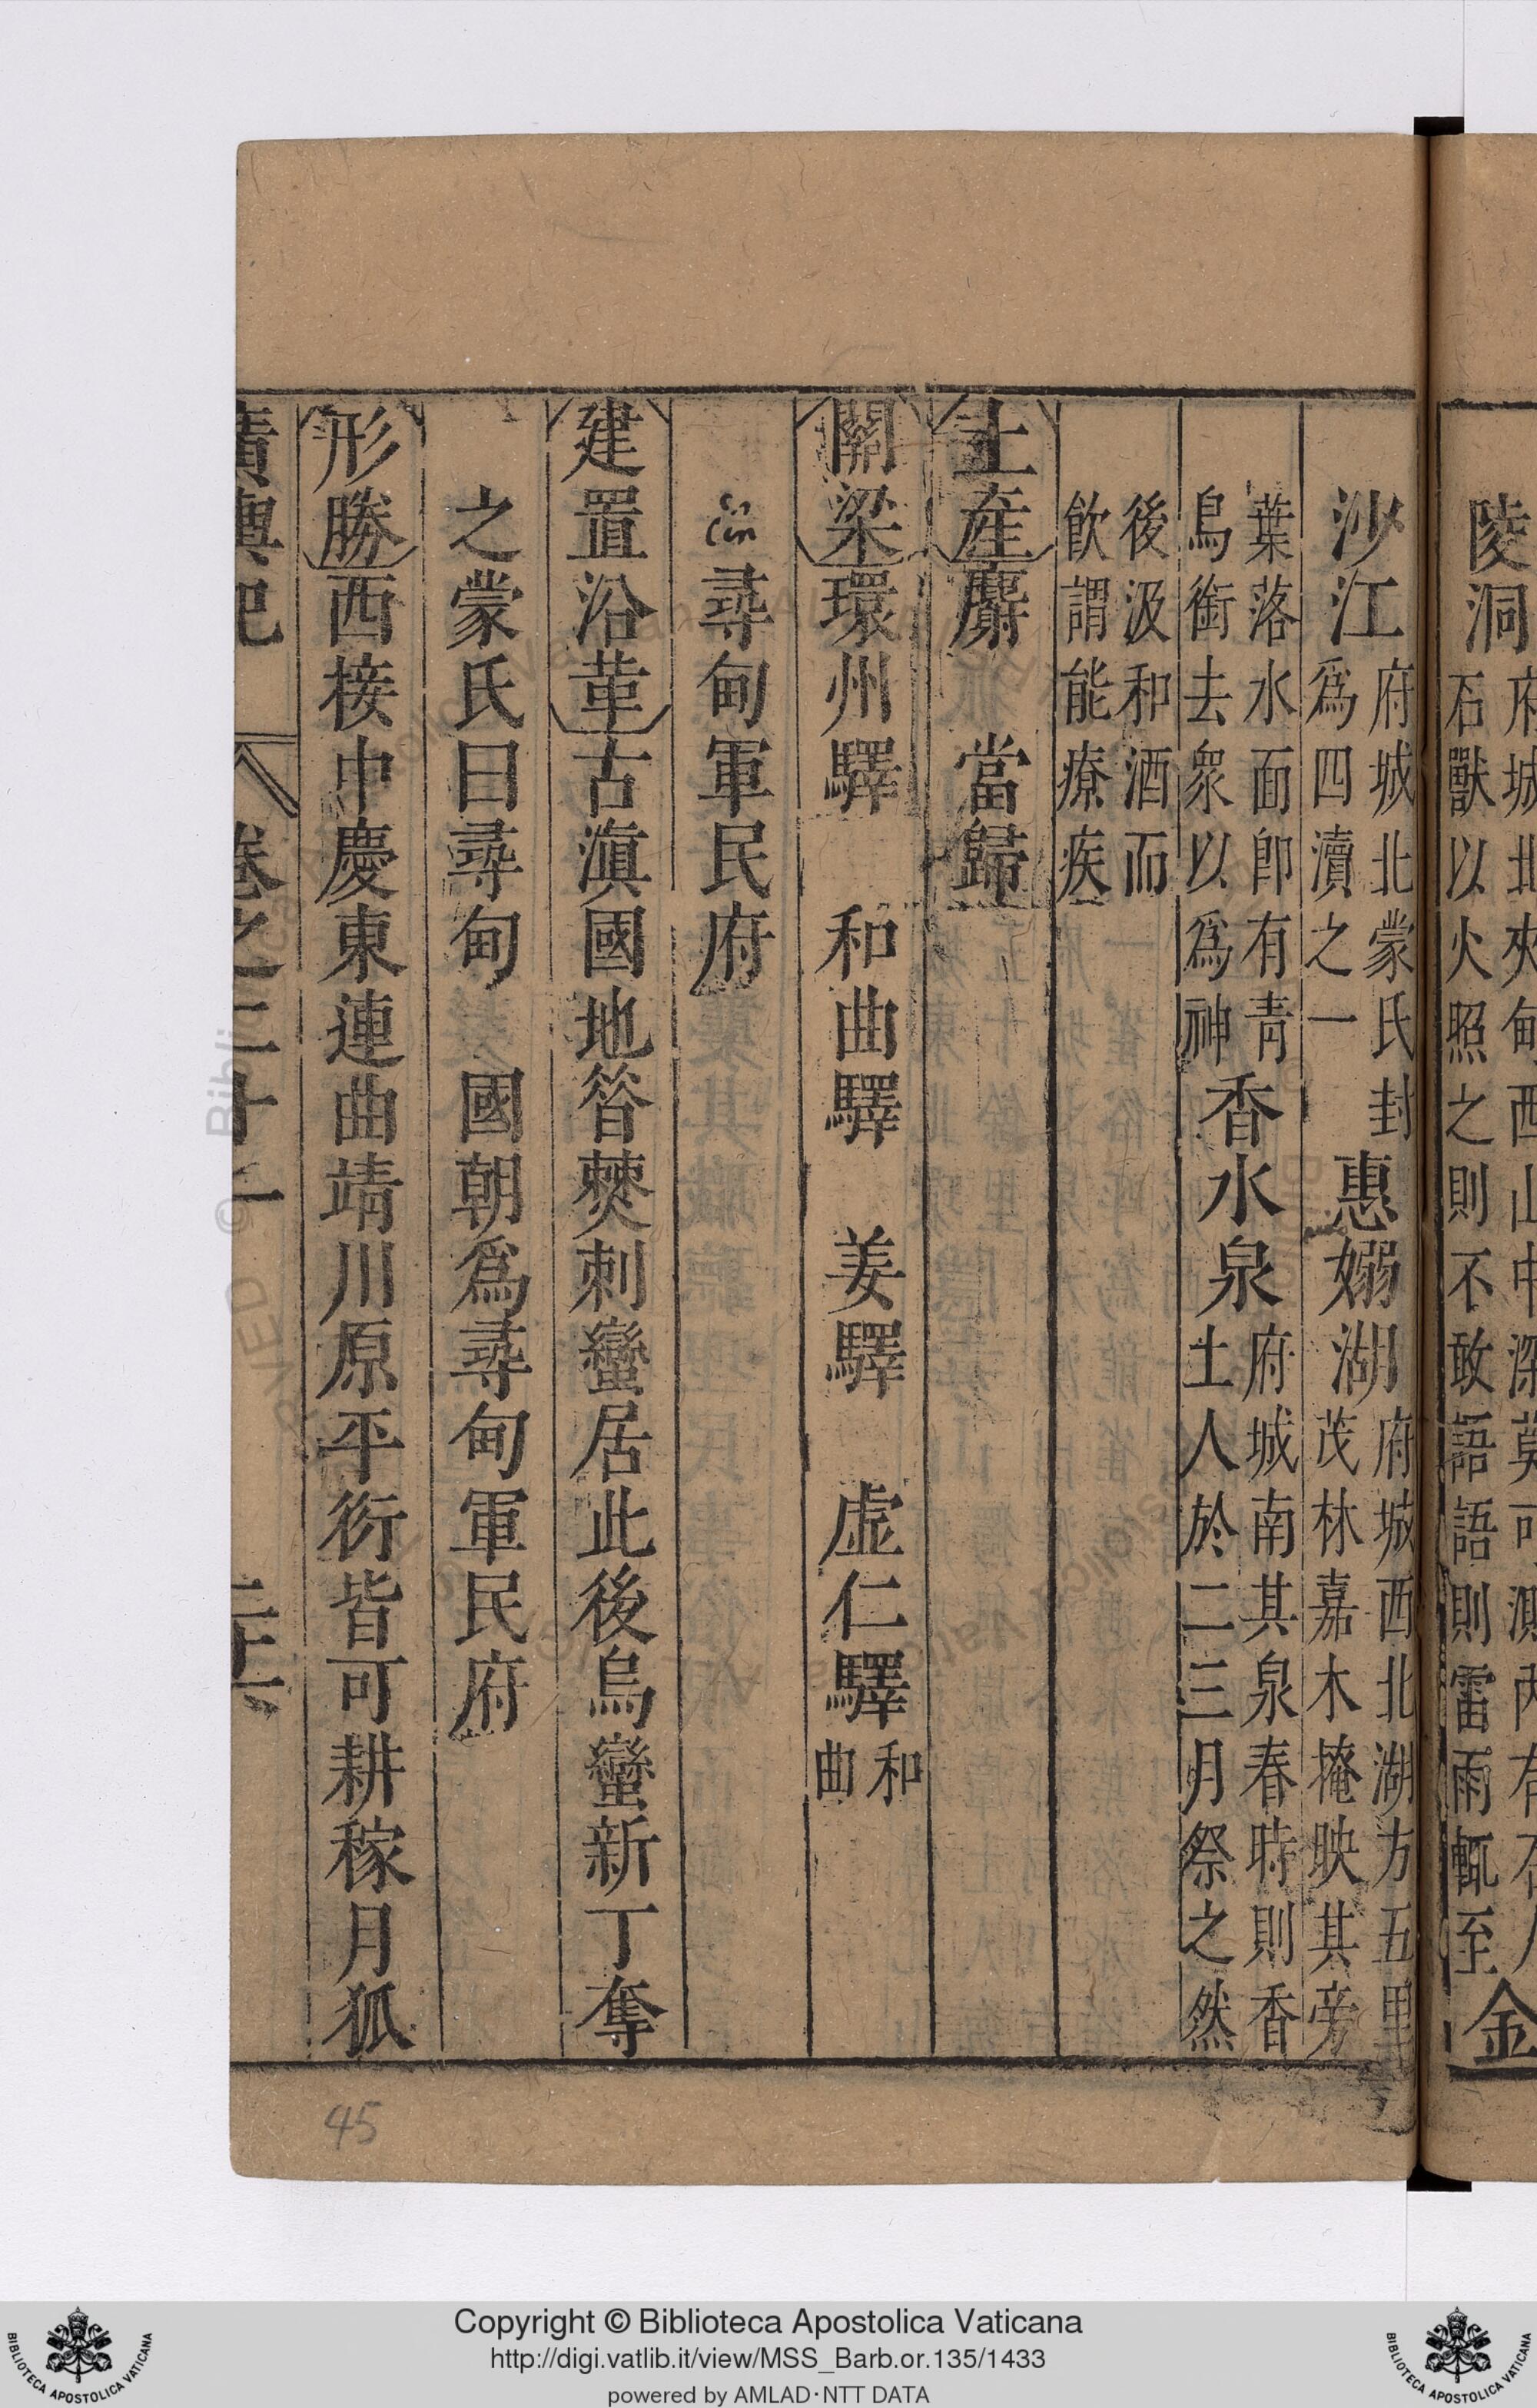 陵洞
石獸以火照之則不敢語語則雷雨輒至
金
沙江府城北蒙氏封
爲四瀆之一
惠嫋湖府城西北湖方五里
茂林嘉木掩映其旁
葉落水面即有青
鳥銜去衆以爲神
香水泉府城南其泉春時則香
土人於二三月祭之然
後汲和酒而
飲謂能療疾
土產麝 當歸
關梁環州驛 和曲驛 姜驛 虛仁驛和
曲
尋甸軍民府
建置沿革古滇國地昝㷼剌蠻居此後烏蠻新丁奪
之蒙氏曰尋甸 國朝爲尋甸軍民府
形勝西接中慶東連曲靖川原平衍皆可耕稼月狐
廣輿記 卷之二十一
45
Copyright © Biblioteca Apostolica Vaticana
http://digi.vatlib.it/view/MSS_Barb.or.135/1433
powered by AMLAD·NTT DATA
BIBLIOTECA APOSTOLICA VATICANA
BIBLIOTECA APOSTOLICA VATICANA